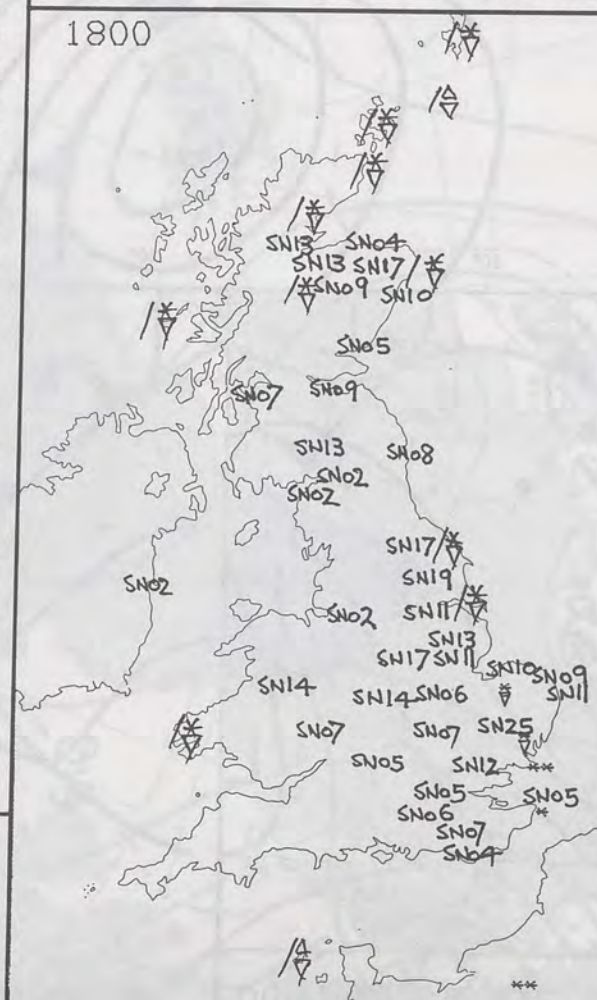 1800
SN13 SN04
SN13 SN17
SN09 SN10
SN05
SN07 SN09
SN13 SN08
SN02
SN02
SN17
SN19
SN02 SN02 SN11
SN13
SN17 SN11 SN10 SN09
SN14 SN14 SN06 SN11
SN07 SN07 SN25
SN05 SN12
SN05 SN05
SN06
SN07
SN04